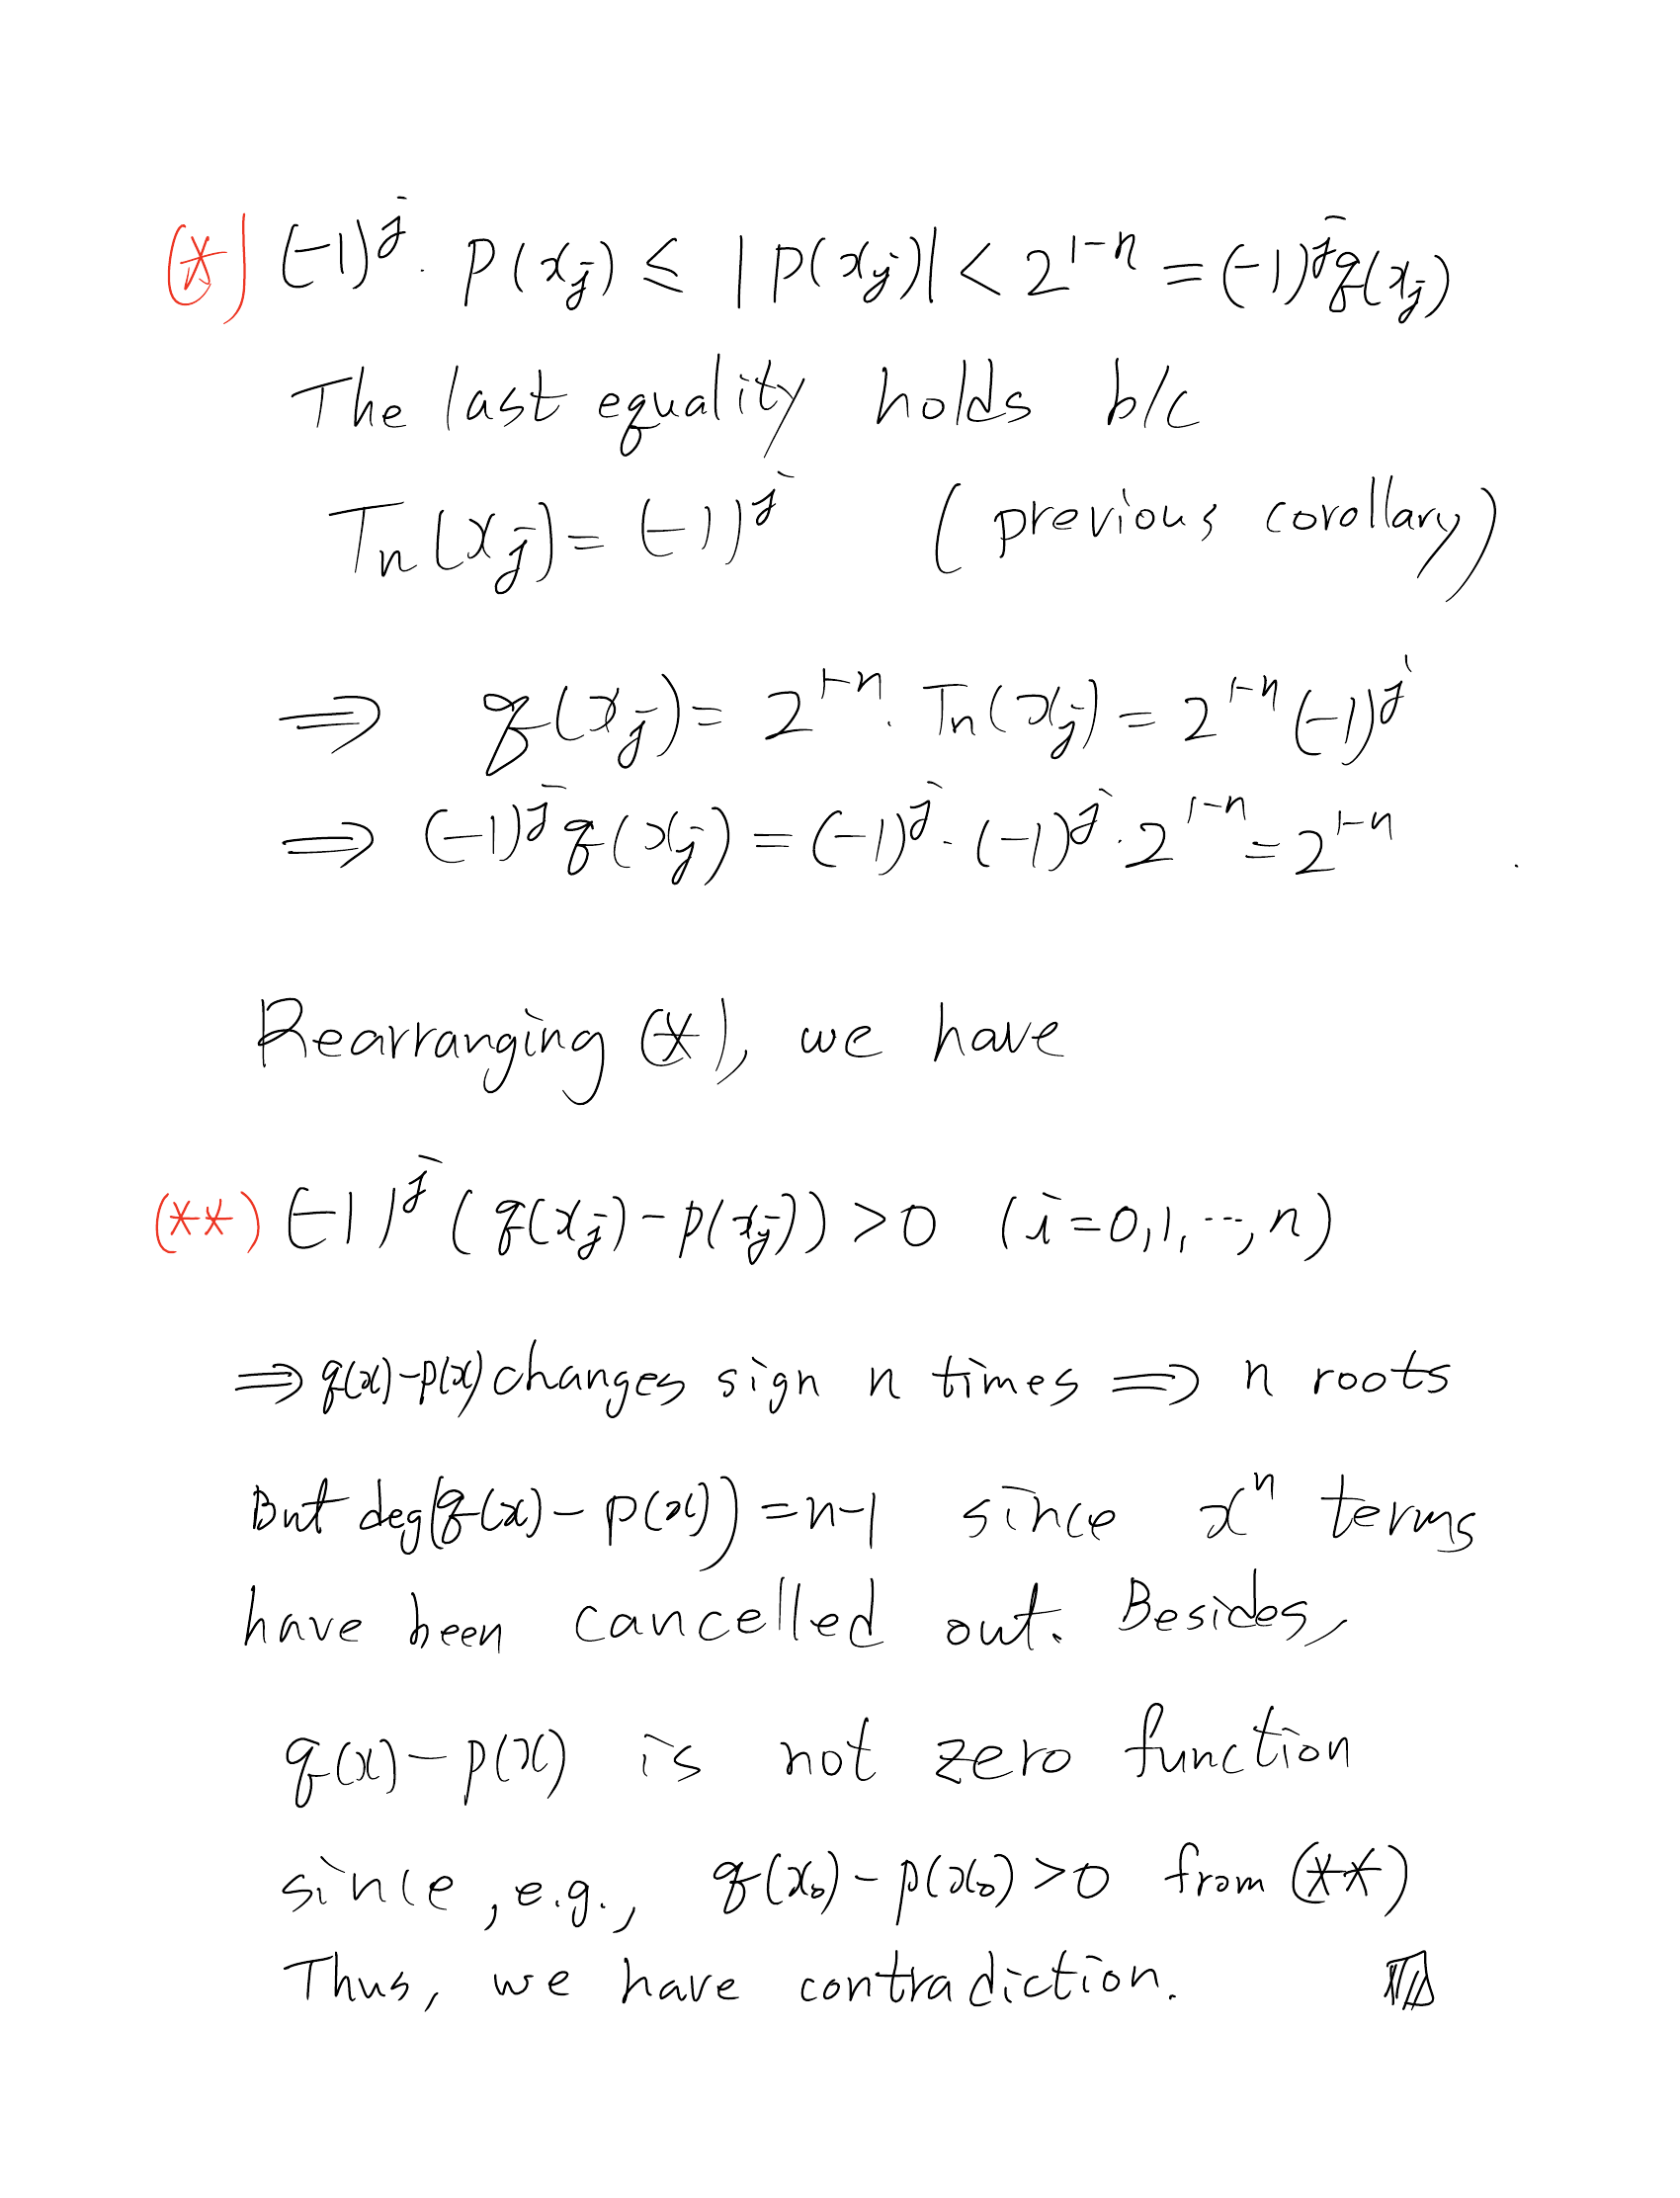 (*) (-1)^j · p(x_j) ≤ |p(x_j)| < 2^{1-n} = (-1)^j q(x_j)
The last equality holds b/c
T_n(x_j) = (-1)^j (previous corollary)
⇒ q(x_j) = 2^{1-n} · T_n(x_j) = 2^{1-n} (-1)^j
⇒ (-1)^j q(x_j) = (-1)^j · (-1)^j · 2^{1-n} = 2^{1-n} .
Rearranging (*), we have
(**) (-1)^j (q(x_j) - p(x_j)) > 0 (i = 0, 1, ⋯, n)
⇒ q(x) - p(x) changes sign n times ⇒ n roots
But deg(q(x) - p(x)) = n-1 since x^n terms
have been cancelled out. Besides,
q(x) - p(x) is not zero function
since, e.g., q(x_0) - p(x_0) > 0 from (**)
Thus, we have contradiction.